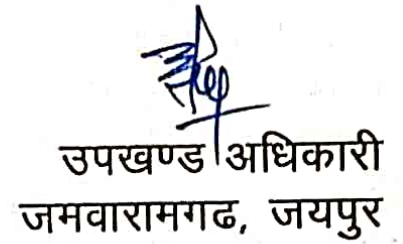 उपखण्ड अधिकारी
जमवारामगढ, जयपुर